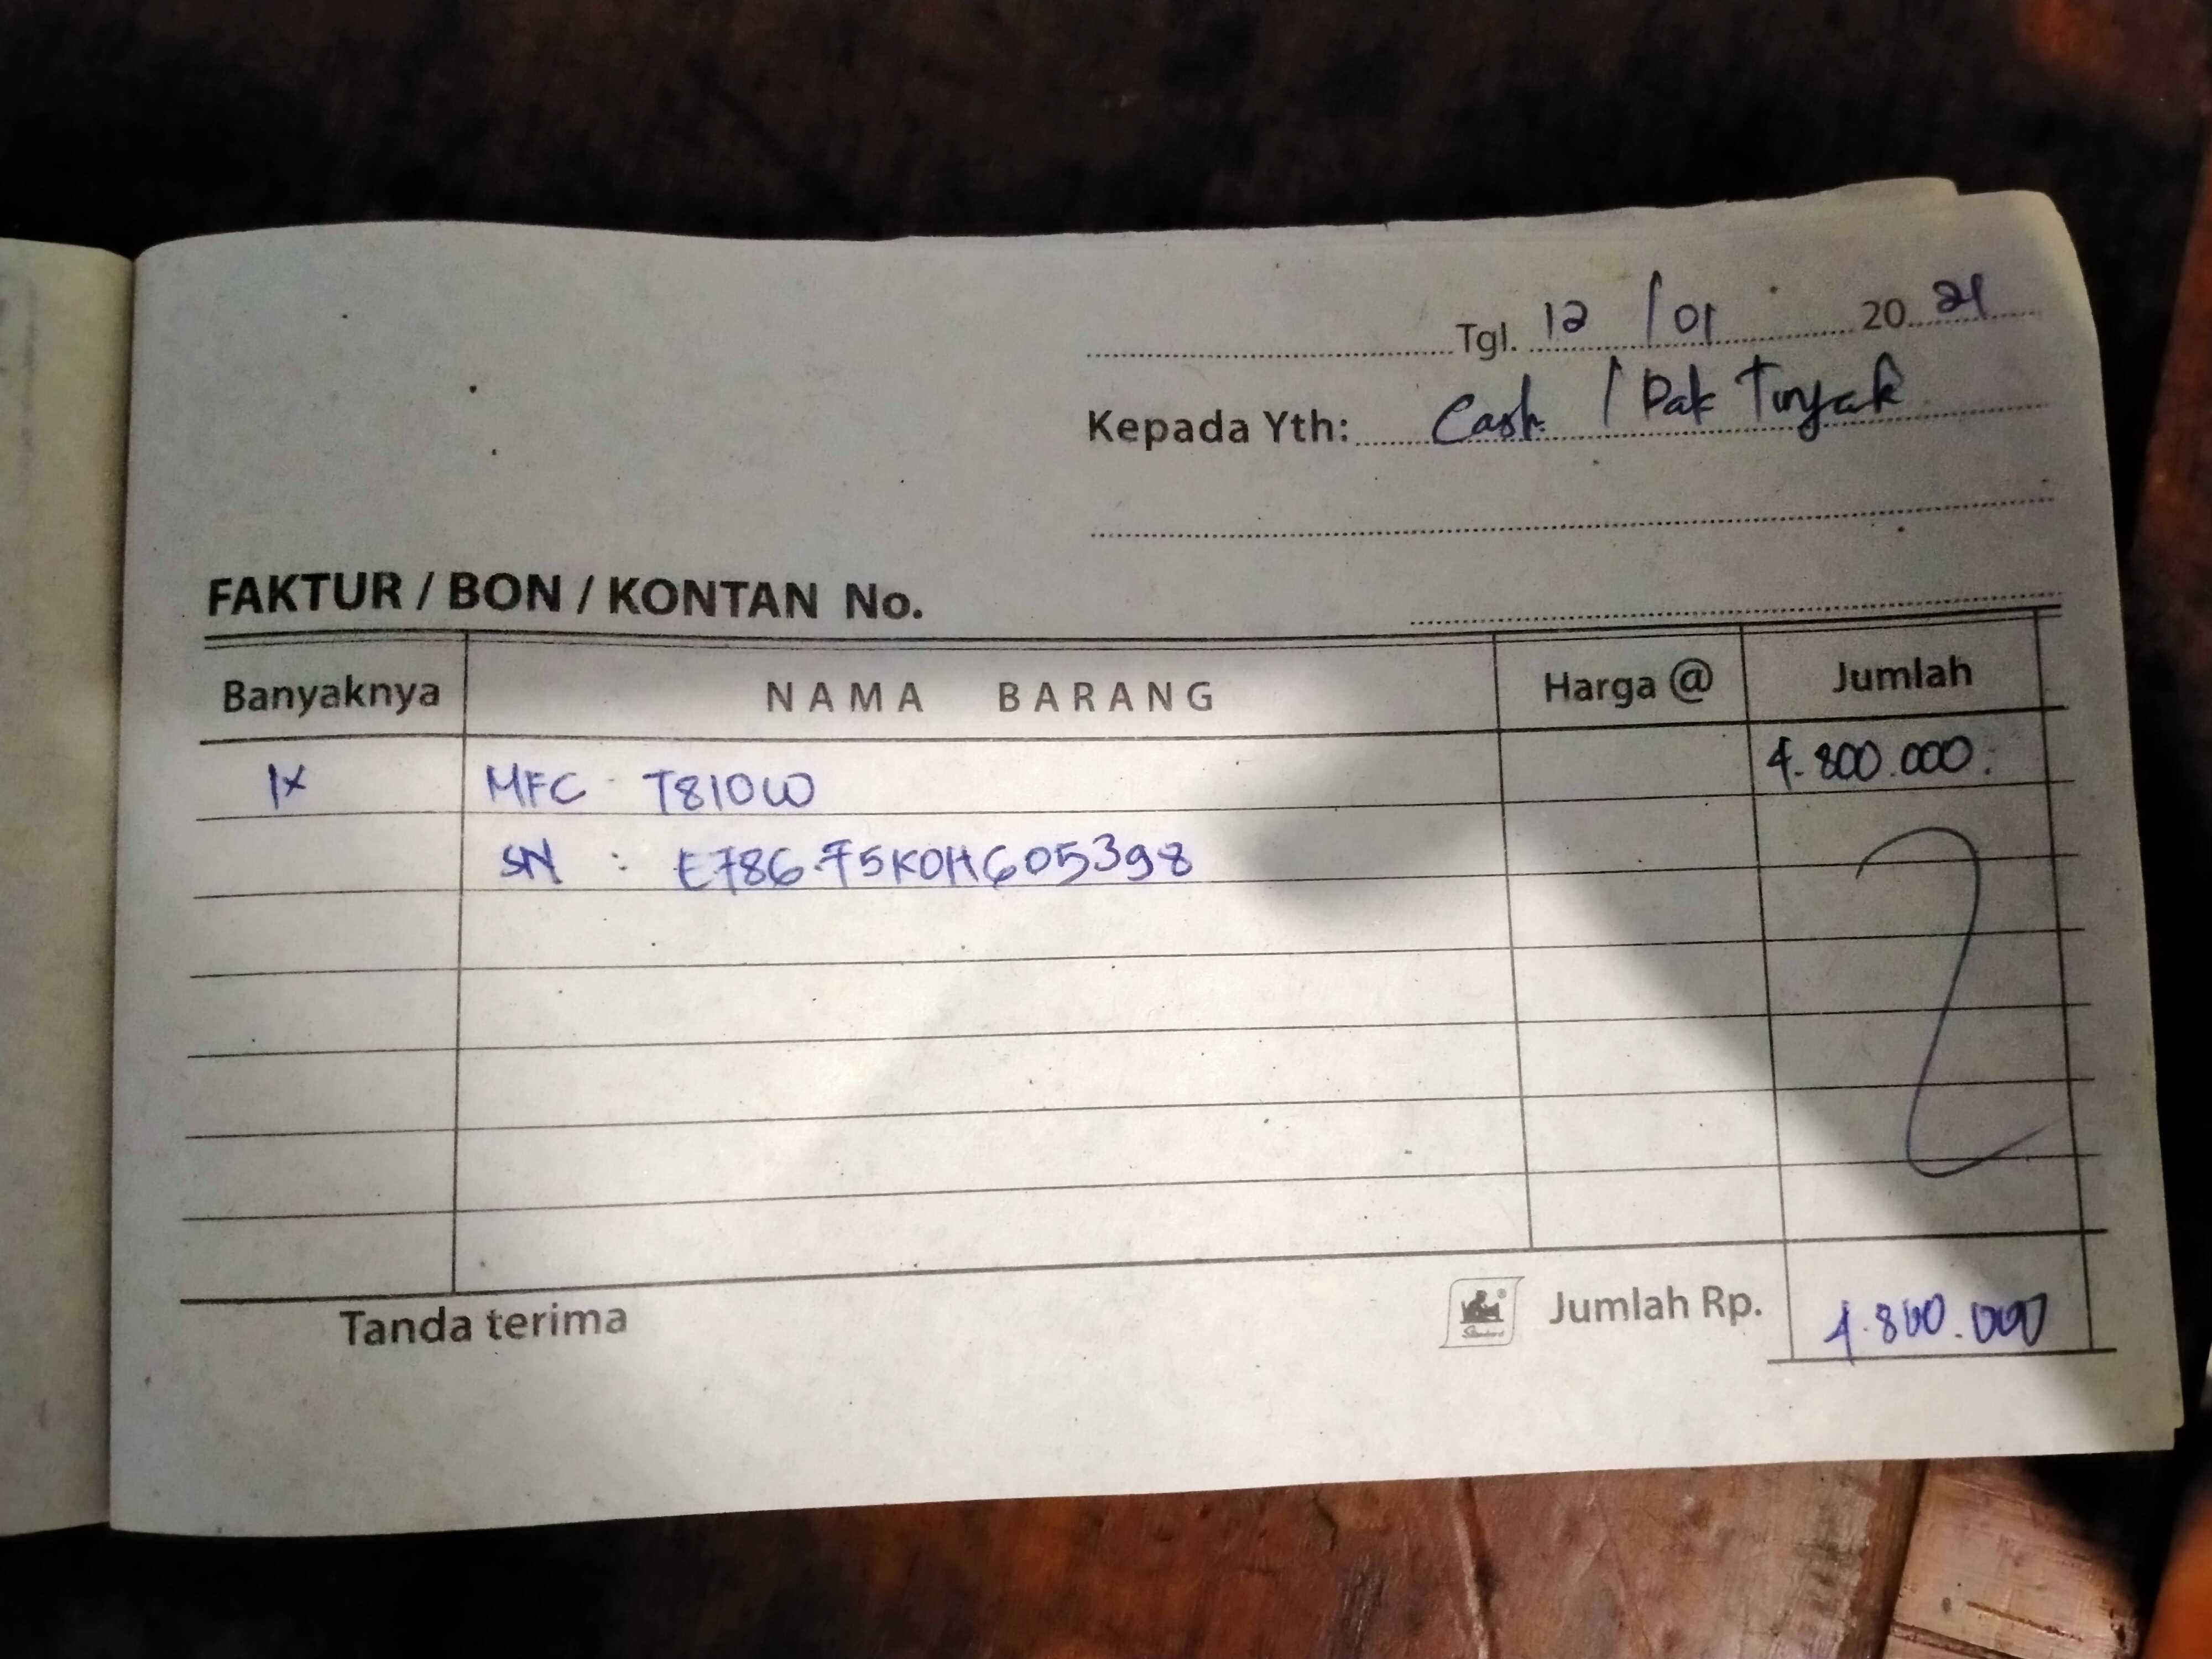 Tgl. 12 / 01 20 21
Kepada Yth: Cash / Pak Tinyak
FAKTUR / BON / KONTAN No.
Banyaknya NAMA BARANG Harga @ Jumlah
1x MFC - T810W 4.800.000.
SN : E786 75K0H605398
Tanda terima Standard Jumlah Rp. 4.800.000